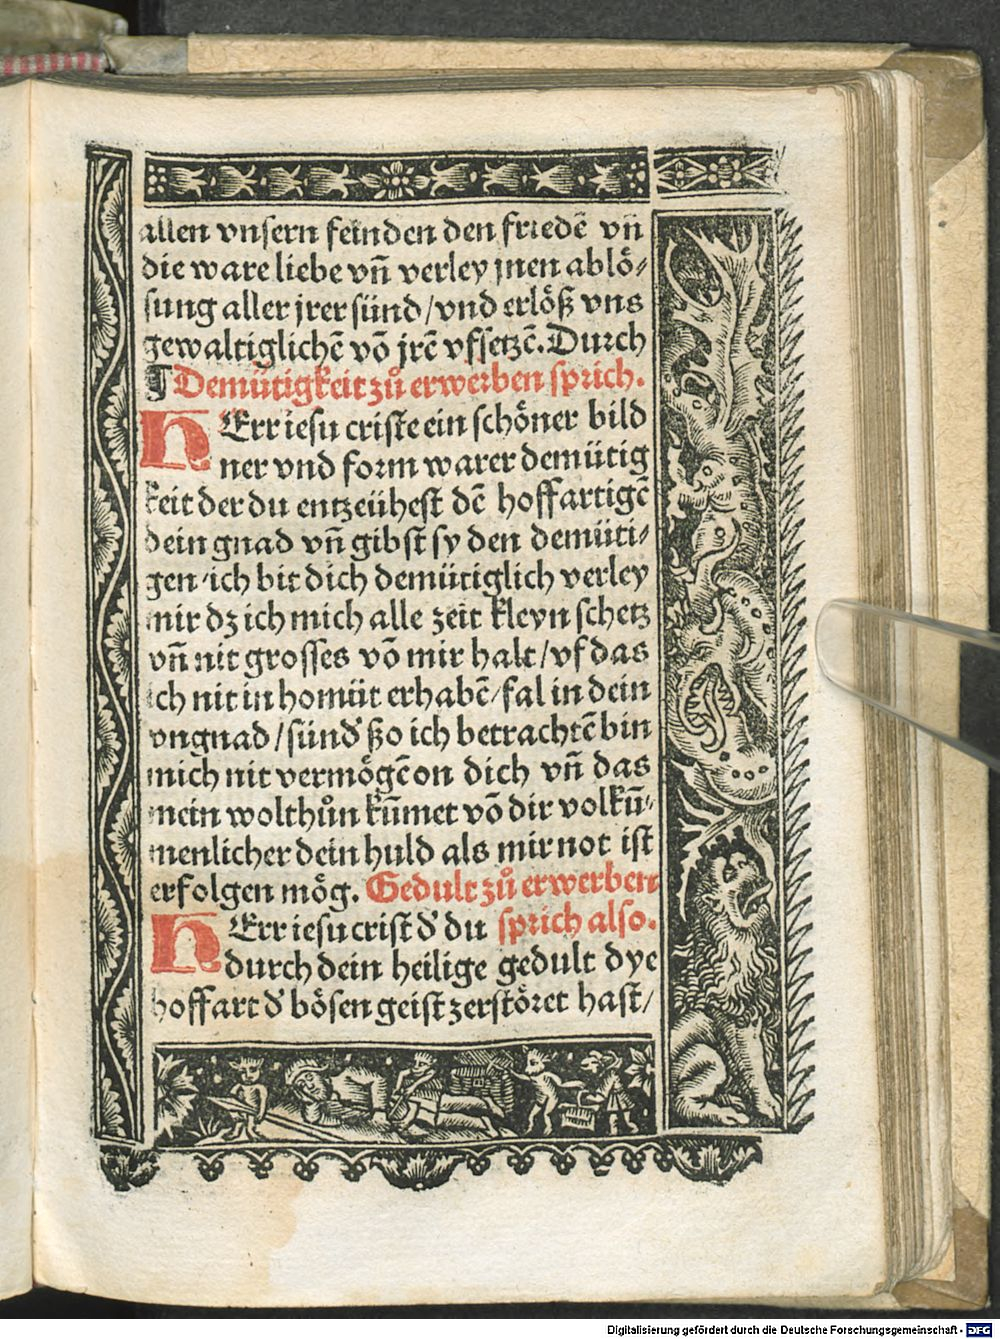 allen vnsern feinden den friedē vñ
die ware liebe vñ verley jnen ablö⸗
sung aller jrer sünd/vnd erlöß vns
gewaltiglichē vō jrē vfsetzē. Durch
¶ Demütigkeit zů erwerben sprich.
HErr iesu criste ein schöner bild
ner vnd form warer demütig
keit der du entzeühest dē hoffartigē
dein gnad vñ gibst sy den demüti⸗
gen/ich bit dich demütiglich verley
mir dz ich mich alle zeit kleyn schetz
vñ nit grosses vō mir halt/vf das
ich nit in homüt erhabē/fal in dein
vngnad/sünd' ßo ich betrachtē bin
mich nit vermögē on dich vñ das
mein wolthůn kūmet vō dir volkū⸗
menlicher dein huld als mir not ist
erfolgen mög. Gedult zů erwerben
HErr iesu crist d' du sprich also.
durch dein heilige gedult dye
hoffart d' bösen geist zerstöret hast/
Digitalisierung gefördert durch die Deutsche Forschungsgemeinschaft - DFG